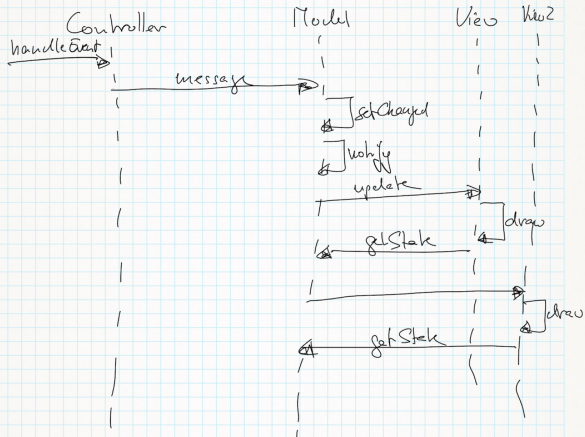 Controller Model View View2
handleEvent
message
setChanged
notify
update
draw
getState
draw
getState